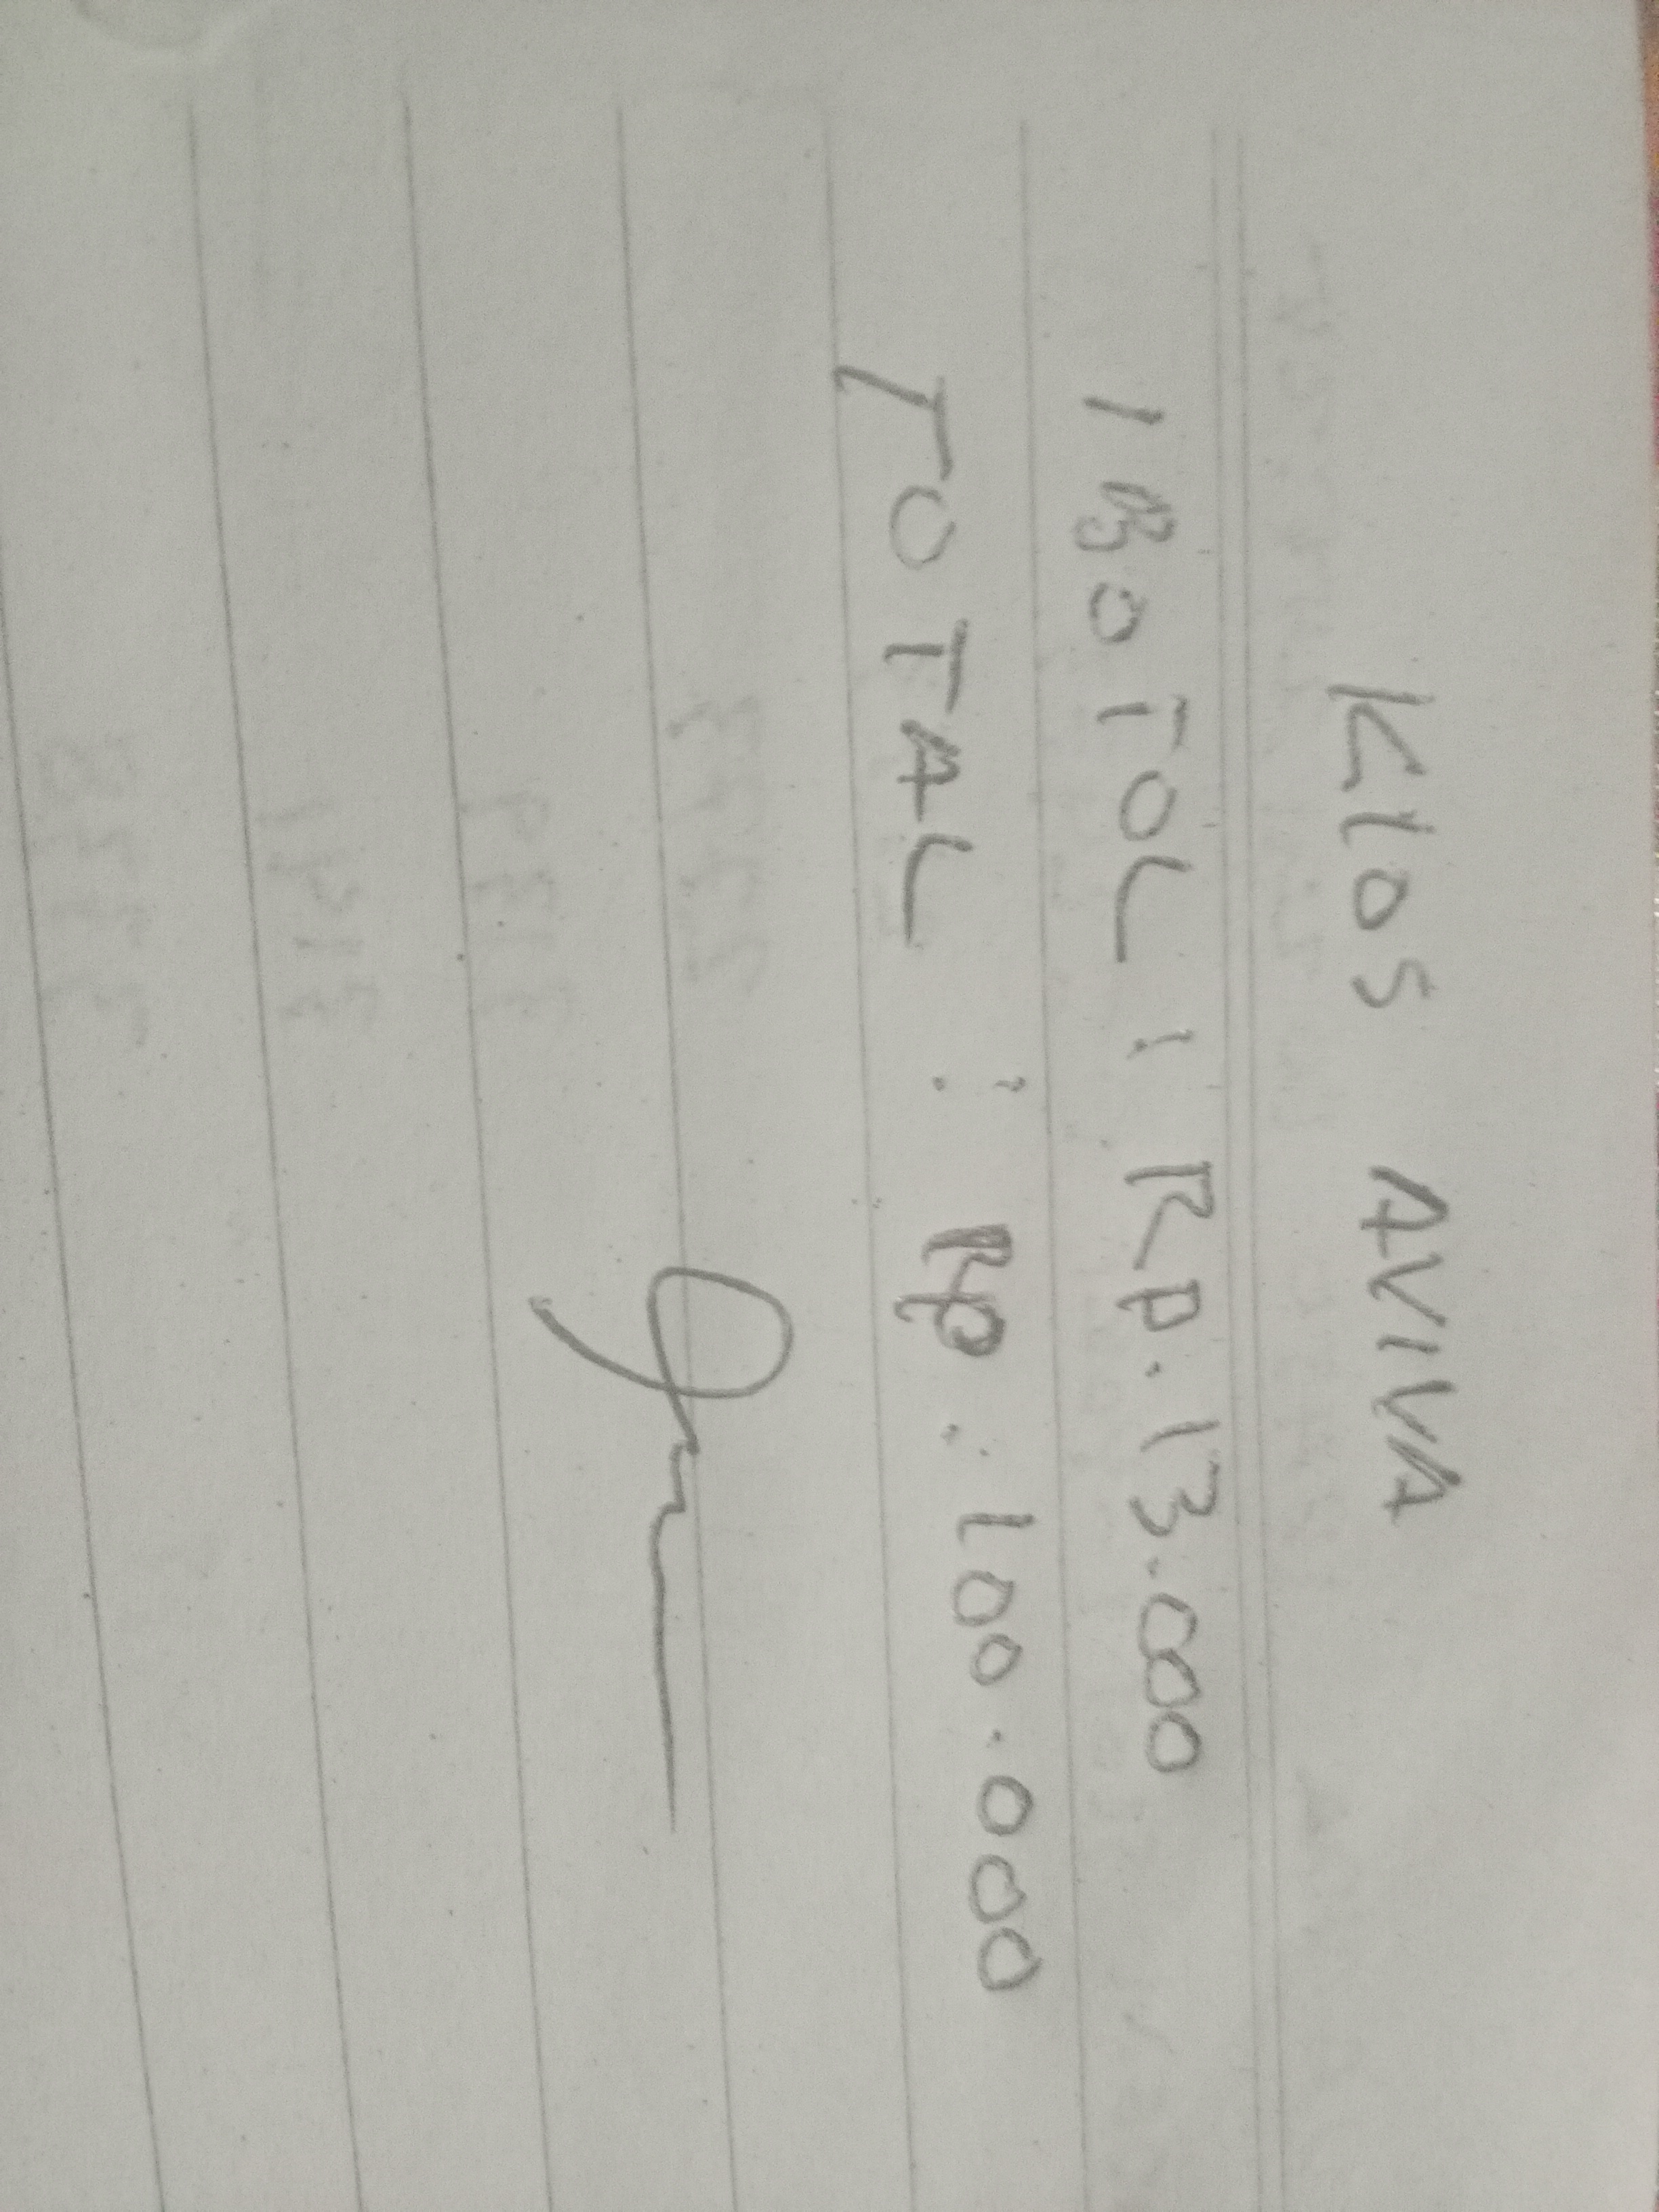 KIOS AVIVA
1 BOTOL : RP. 13.000
TOTAL : Rp. 100.000